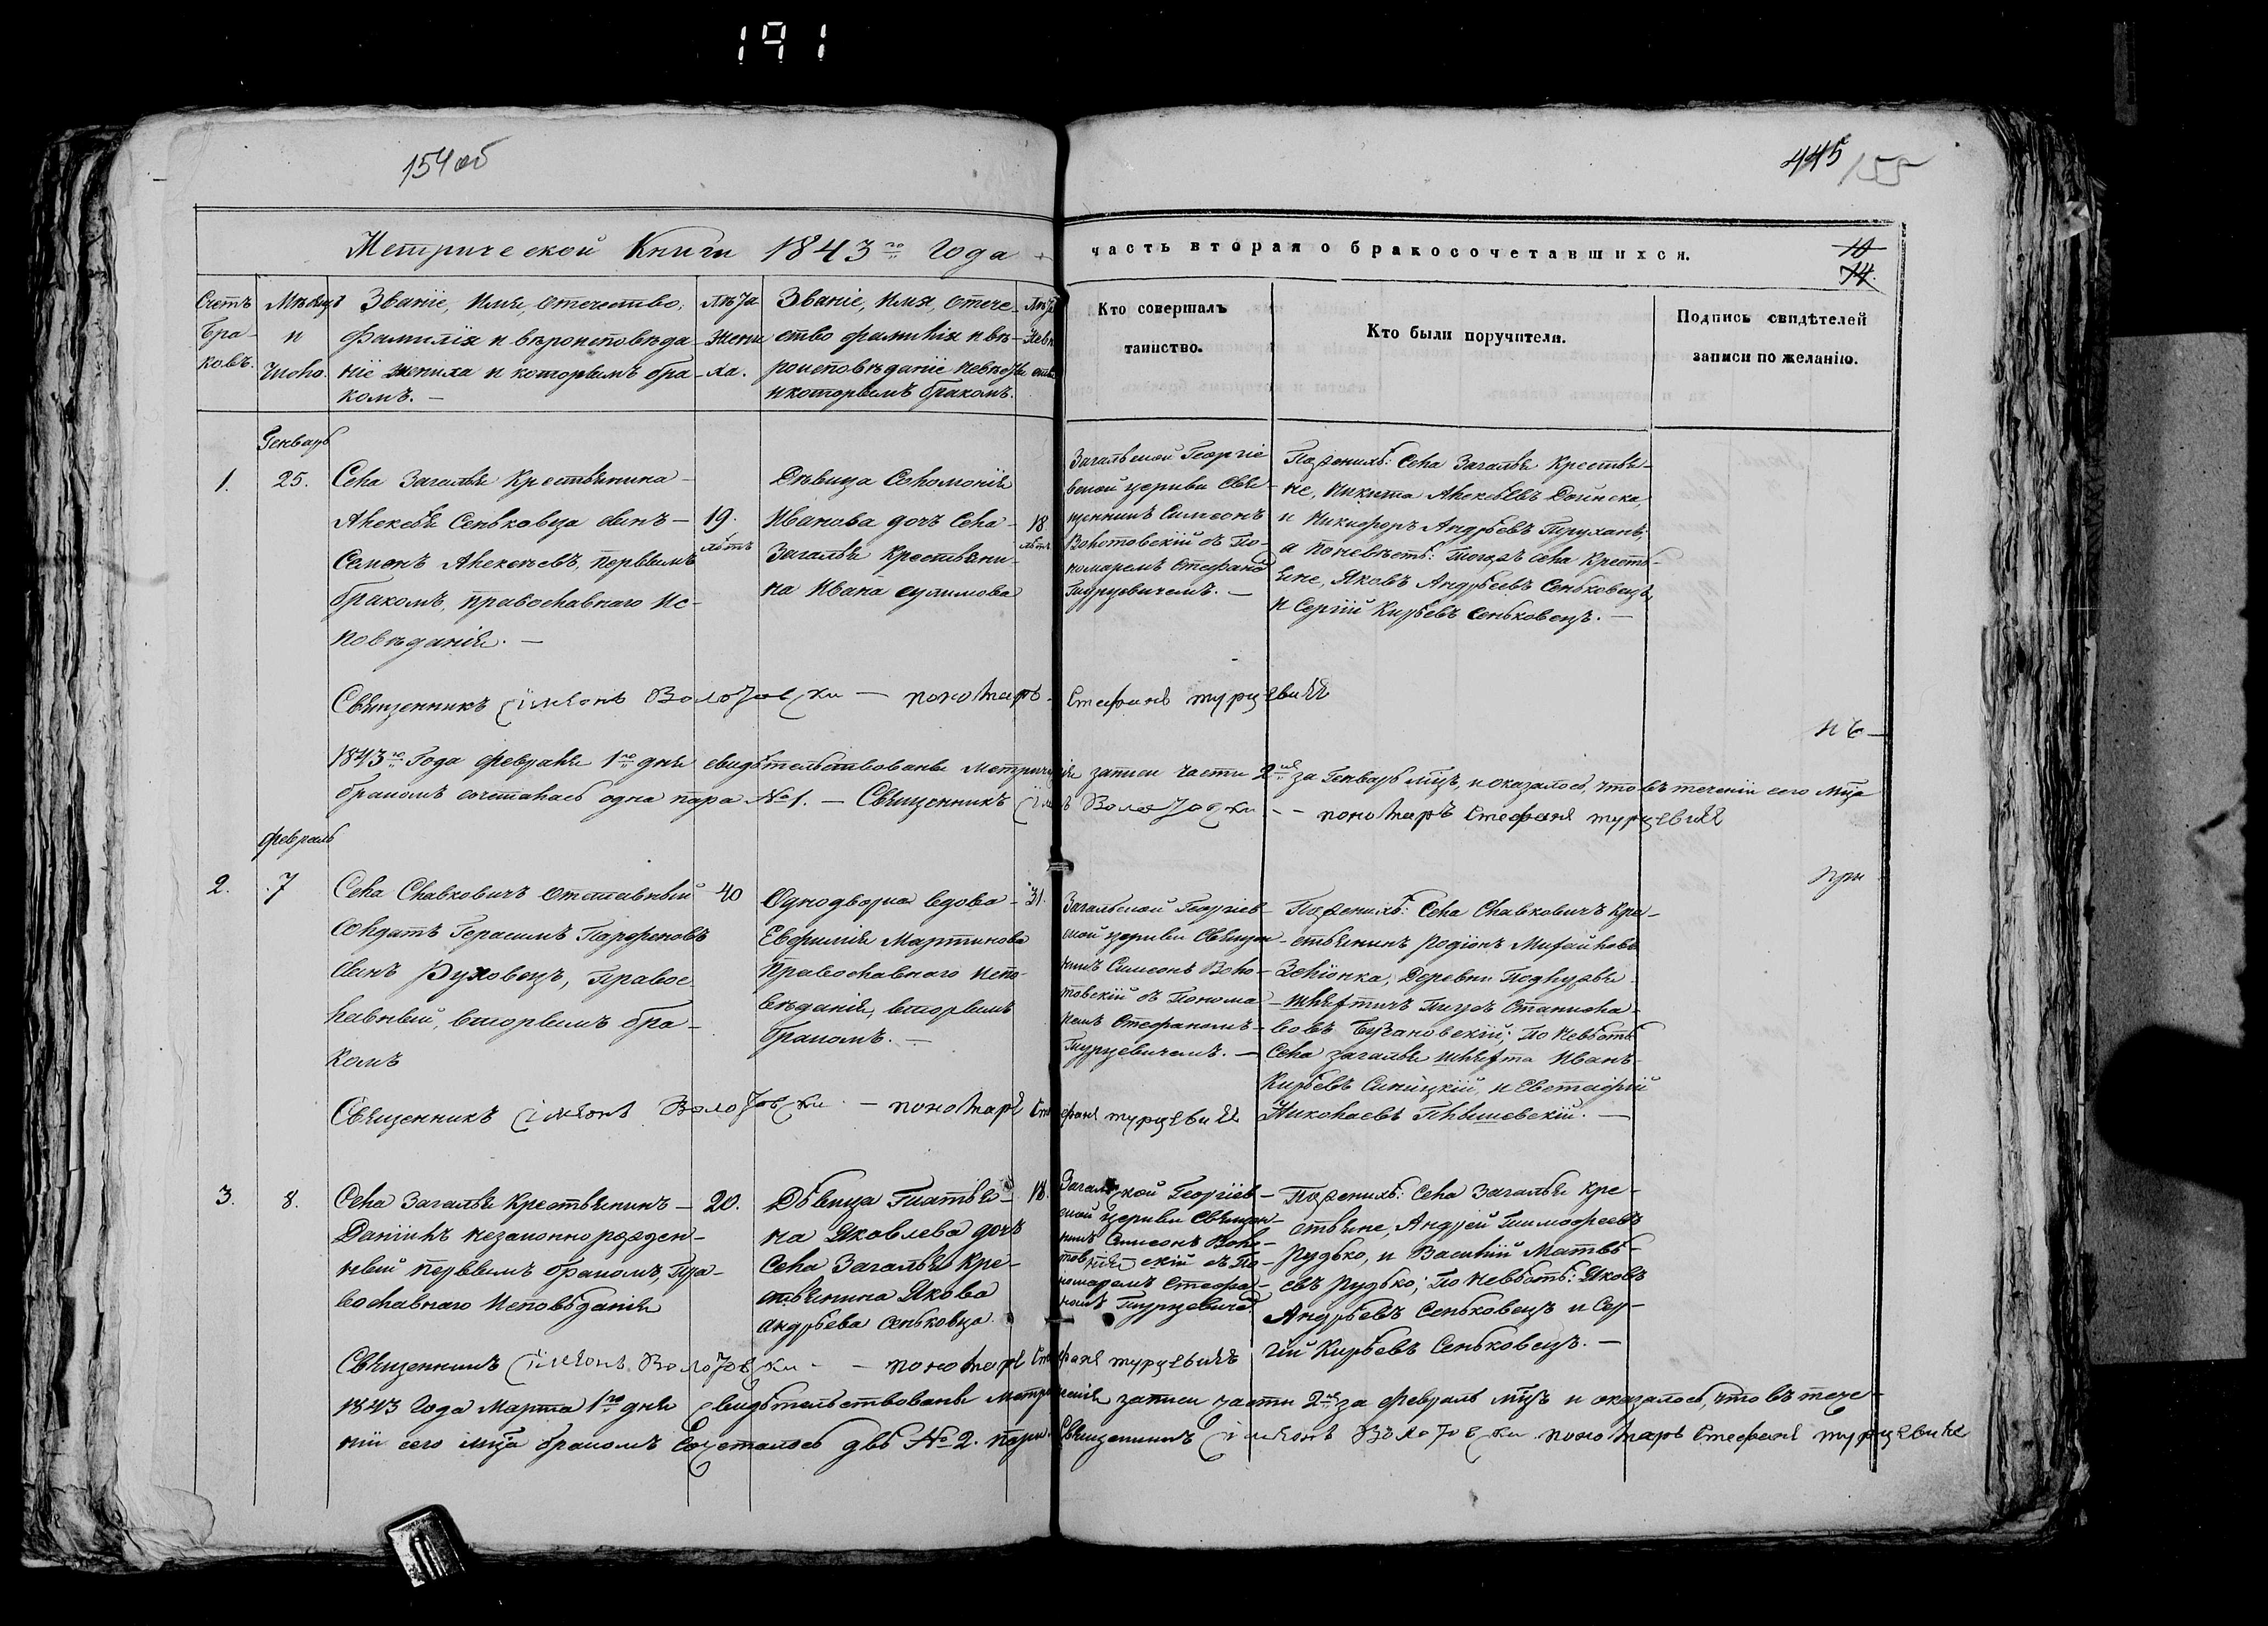 191
154 об
445
155
Метрической Книги 1843го Года
часть вторая о бракосочетавшихся.
10
14.
Счетъ Браковъ.
Мѣсяцъ и Число.
Званіе, Имя, Отечество,
Фамилія и вѣроисповѣда-
ніе жениха и которымъ бра-
комъ. —
Лѣта Жениха.
Званіе, Имя, Отече-
ство фамилія и вѣ-
роисповѣданіе невѣсты
и которымъ бракомъ.
Лѣта Невѣсты
Кто совершалъ
таинство.
Кто были поручители.
Подпись свидѣтелей
записи по желанію.
Генварь
1.
25.
Села Загалья Крестьянина
Алексѣя Сеньковца сынъ —
Семенъ Алексѣевъ, первымъ
бракомъ, православнаго Ис-
повѣданія. —
19.
лѣтъ
Дѣвица Соломонія
Иванова дочь Села
Загалья Крестьяни-
на Ивана
18.
лѣтъ
Загальской Георгіе
вской церкви Свя-
щенникъ Симеонъ
Волотовскій съ По-
номаремъ Стефаном
Турцевичемъ. —
По женихѣ: Села Загалья Крестья-
не, Никита Алексѣевъ
и Никифоръ Андрѣевъ
а по невѣстѣ: Тогожъ села Кресть-
яне, Яковъ Андрѣевъ Сеньковецъ,
и Сергій Кирѣевъ Сеньковецъ. —
Священникъ Сімеонъ Волотовски — пономаръ Стефанъ турцевичъ
1843го Года февраля 1го дня свидѣтельствованы Метрическія записи части 2й за Генварь мцъ, и оказалось, что въ теченіи сего мца
бракомъ сочеталась одна пара №1. — Священникъ Сімеонъ Волотовски — пономаръ Стефанъ турцевичъ
февраль
2.
7
Села Славковичъ Отставный
Солдатъ Герасимъ Парфеновъ
сынъ Руховецъ, Правос
лавный, вторымъ бра-
комъ
40
Однодворка вдова
Евфимія Мартинова
Православнаго Испо-
вѣданія, вторымъ
бракомъ. —
31.
Загальской Георгіев-
ской церкви Священ-
никъ Симеонъ Воло-
товскій съ Понома
Стефаномъ
Турцевичемъ. —
По женихѣ: Села Славковичъ Кре-
стьянинъ Родіонъ Михайловъ
Деревни
шляхтичъ Станисла-
вовъ По Невѣстѣ
Села Загалья шляхта Иванъ
Кирѣевъ Синицкій, и Евстафій
Николаевъ —
Священникъ Сімеонъ Волотовски — пономаръ Стефанъ турцевичъ
3.
8.
Села Загалья Крестьянинъ —
Даніилъ незаконнорожден-
ный первымъ бракомъ, Пра-
вославнаго Исповѣданія
20.
Дѣвица Татья-
на Яковлева дочь
Села Загалья Кре-
стьянина Якова
Андрѣева Сеньковца.
18.
Загальской Георгіев-
ской Церкви Священ-
никъ Симеонъ Воло-
товскій съ По-
номаремъ Стефа-
номъ Турцевиче
По женихѣ: Села Загалья Кре-
стьяне, Андрей Тимофеевъ
Рудько, и Василій Матвѣ-
евъ Рудько; По Невѣстѣ: Яковъ
Андрѣевъ Сеньковецъ и Сер-
гій Кирѣевъ Сеньковецъ. —
Священникъ Сімеонъ Волотовски — пономаръ Стефанъ турцевичъ
1843 Года Марта 1го дня свидѣтельствованы Метрическія записи части 2й за февраль мцъ и оказалось, что въ тече-
ніи сего мца бракомъ Сочеталось двѣ №2. пары. Священникъ Сімеонъ Волотовски пономаръ Стефанъ турцевичъ